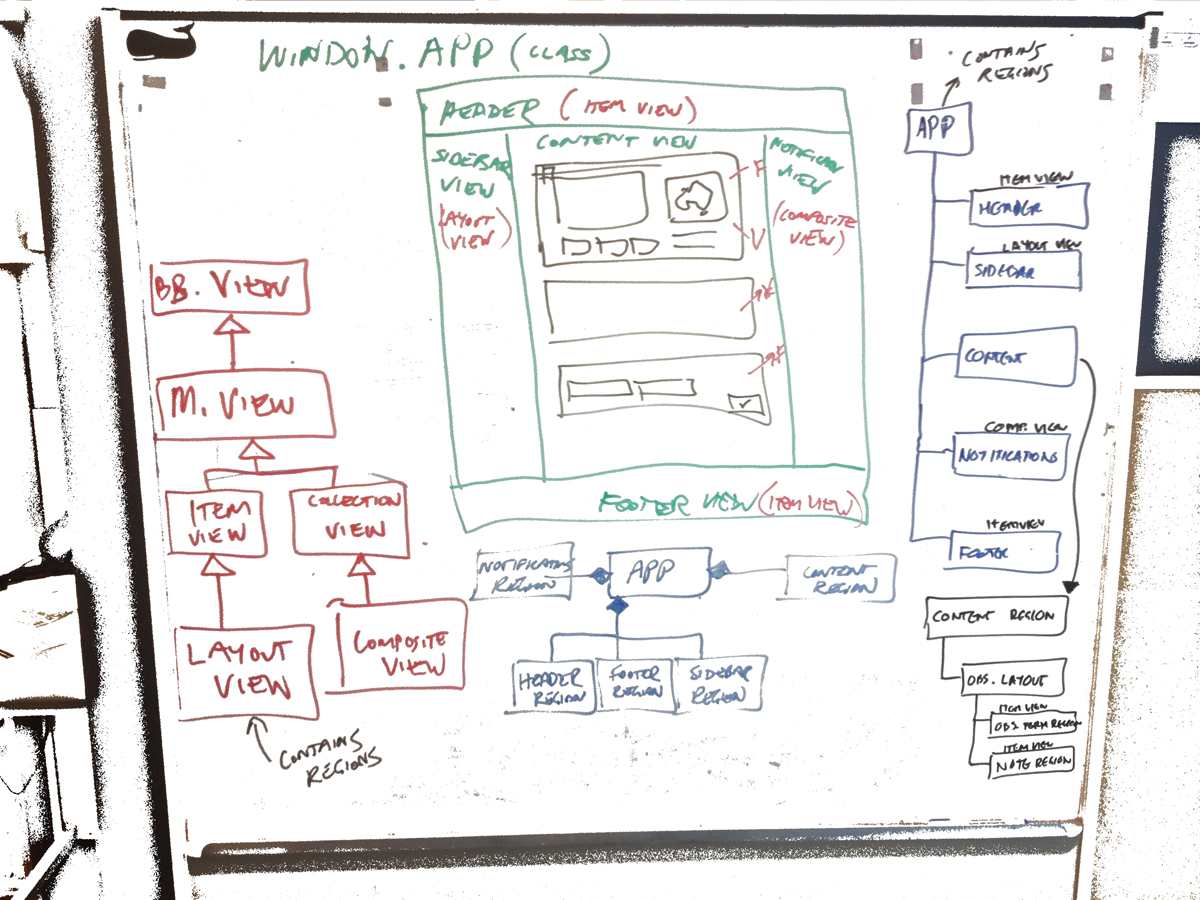 WINDOW. APP (CLASS)
HEADER (ITEM VIEW)
SIDEBAR
VIEW
(LAYOUT
VIEW)
CONTENT VIEW
VIEW
(COMPOSITE
VIEW)
F
V
FOOTER VIEW (ITEM VIEW)
BB. VIEW
M. VIEW
ITEM
VIEW
COLLECTION
VIEW
LAYOUT
VIEW
COMPOSITE
VIEW
CONTAINS
REGIONS
REGION
APP
CONTENT
REGION
HEADER
REGION
FOOTER
REGION
SIDEBAR
REGION
CONTAINS
REGIONS
APP
ITEM VIEW
HEADER
LAYOUT VIEW
SIDEBAR
CONTENT
COMP. VIEW
NOTIFICATIONS
ITEM VIEW
FOOTER
CONTENT REGION
OBS. LAYOUT
ITEM VIEW
OBS TERM REGION
ITEM VIEW
NOTE REGION